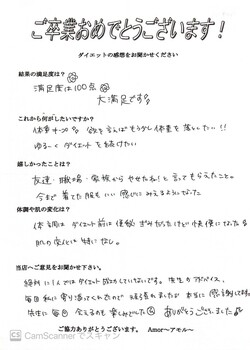 ご卒業おめでとうございます!
ダイエットの感想をお聞かせください
結果の満足度は?
満足度は100点
大満足です
これから何がしたいですか?
体重キープ 欲を言えばもう少し体重を落したい!!
ゆる〜くダイエットを続けたい
嬉しかったことは?
友達・職場・家族からやせたね!と言ってもらえたこと。
今まで着てた服もいい感じにみえるようになった
体調や肌の変化は?
体調はダイエット前は便秘ぎみだったけど快便になった
肌の変化は特になし。
当店へご意見をお聞かせ下さい。
絶対に1人ではダイエット成功していないです。先生のアドバイス、
毎回私に寄り添ってくれたので頑張れました 本当に感謝してます。
先生に毎回会えるのも楽しみでした ありがとうございました
ご協力ありがとうございます。 Amor〜アモル〜
CS CamScannerでスキャン